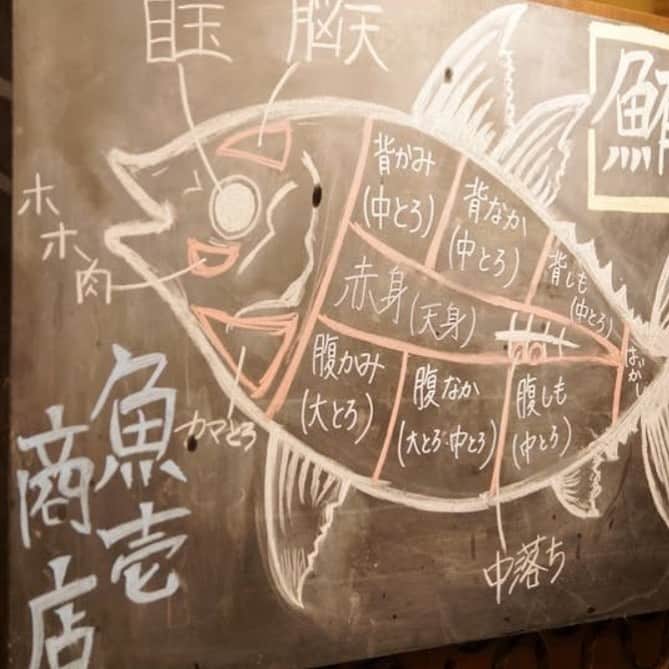 目玉
脳天
ホホ肉
カマとろ
背かみ
(中とろ)
背なか
(中とろ)
背しも
(中とろ)
赤身(天身)
腹かみ
(大とろ)
腹なか
(大とろ・中とろ)
腹しも
(中とろ)
中落ち
魚壱
商店